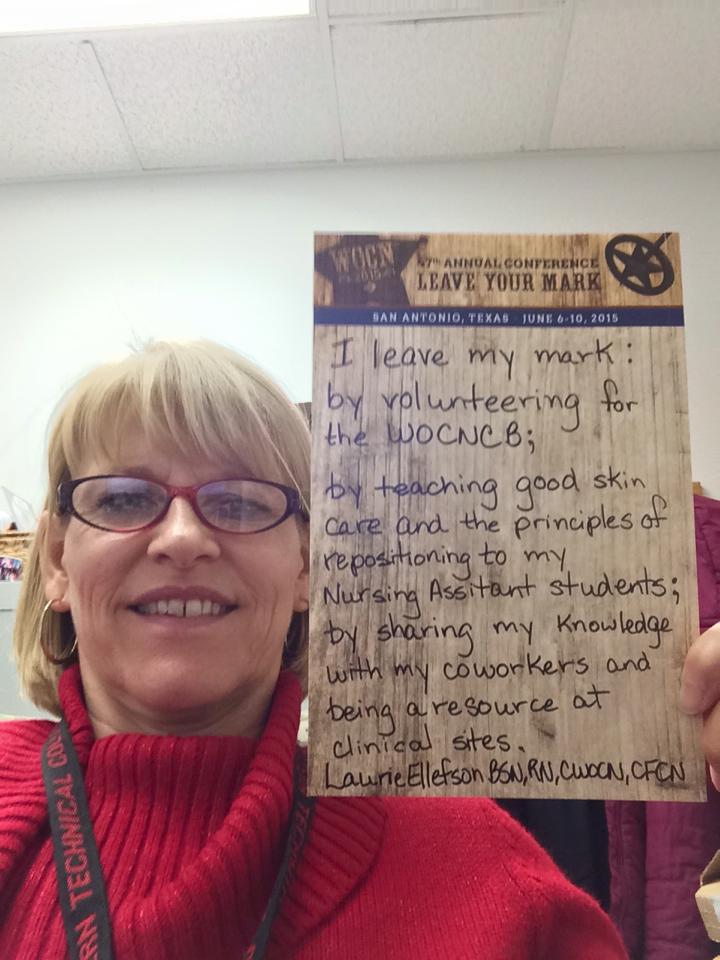 WOCN
2015
47th ANNUAL CONFERENCE
LEAVE YOUR MARK
SAN ANTONIO, TEXAS JUNE 6-10, 2015
I leave my mark:
by volunteering for
the WOCNCB;
by teaching good skin
care and the principles of
repositioning to my
Nursing Assitant students;
by sharing my Knowledge
with my coworkers and
being a resource at
clinical sites.
Laurie Ellefson BSN, RN, CWOCN, CFCN
RN TECHNICAL COL
TECHNICAL